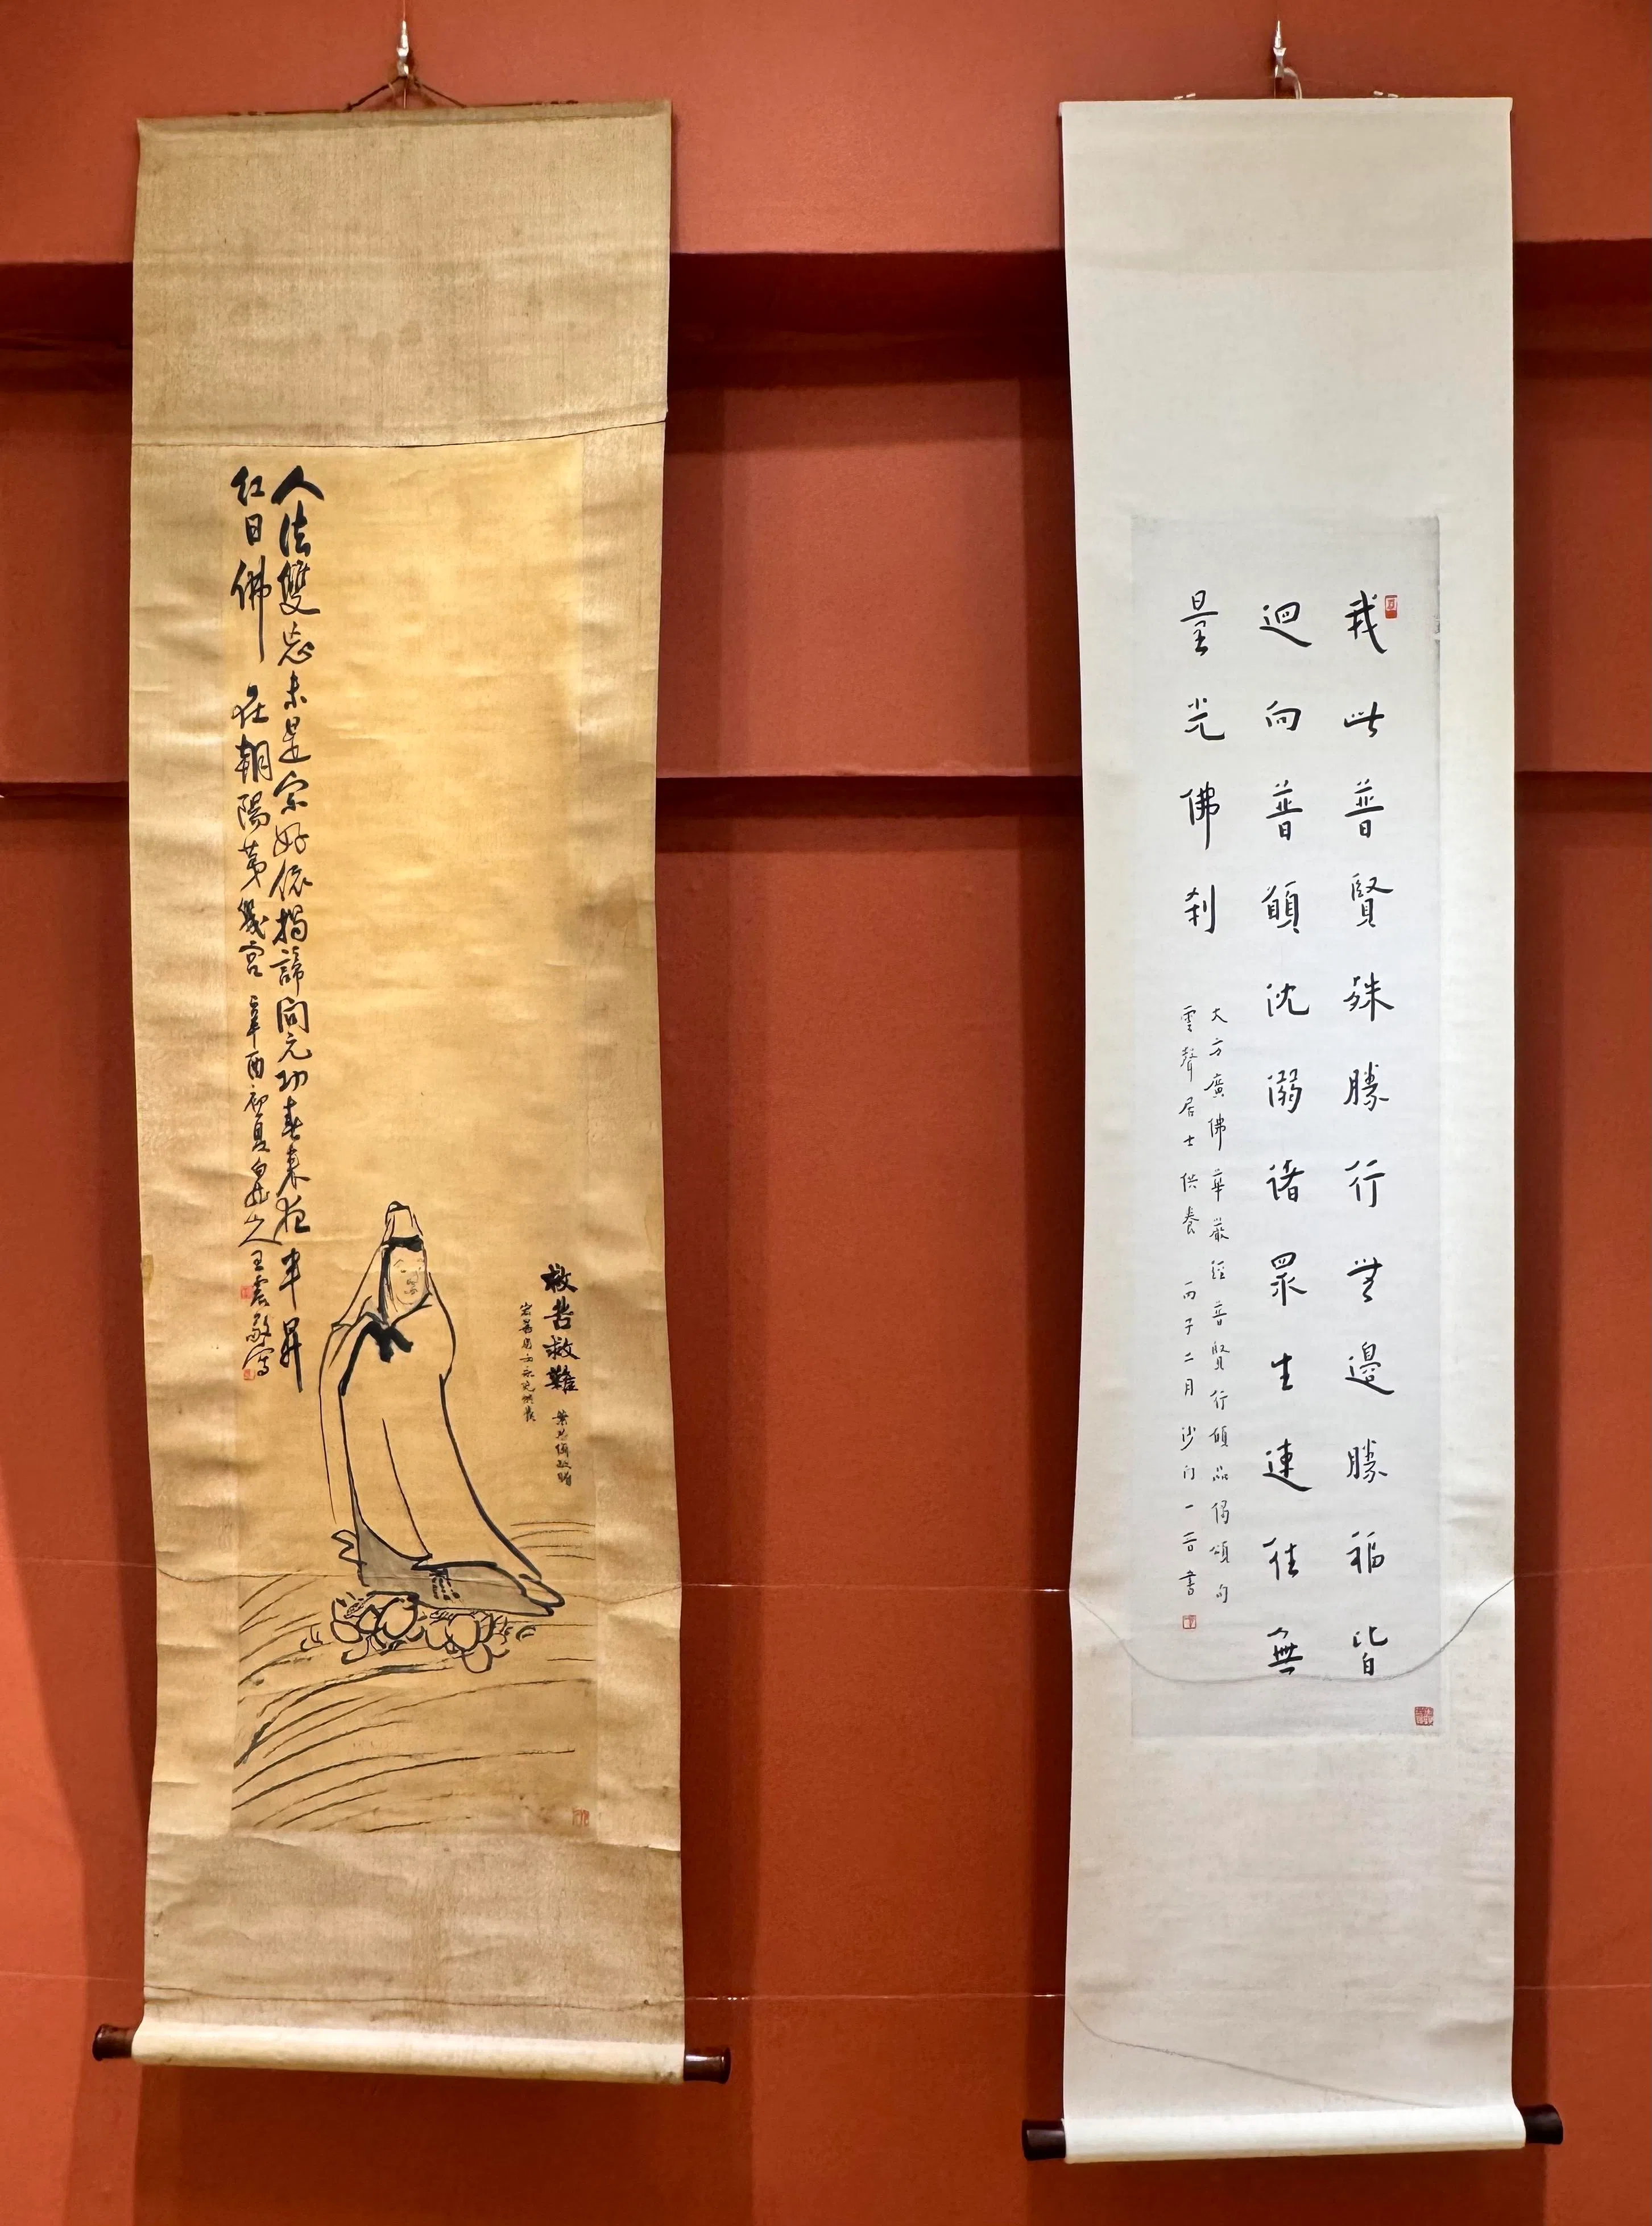 我此普賢殊勝行無邊勝福皆
迴向普願沈溺諸眾生速往無
量光佛剎
大方廣佛華嚴經普賢行願品偈頌句
雲聲居士供養 丙子二月沙門一音書
救苦救難
人法雙忘未是宗好依揭諦問元功春來夜半昇
紅日佛在朝陽第幾宮 辛酉初夏白龍山人王震敬寫